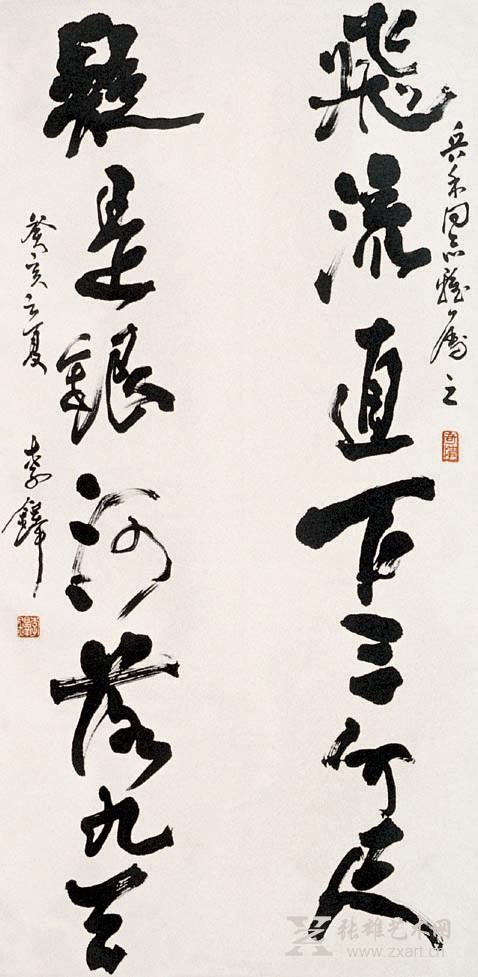 兵禾同志雅屬之
飛流直下三千尺
疑是銀河落九天
癸亥之夏
李鐸
张雄艺术网
www.zxart.cn